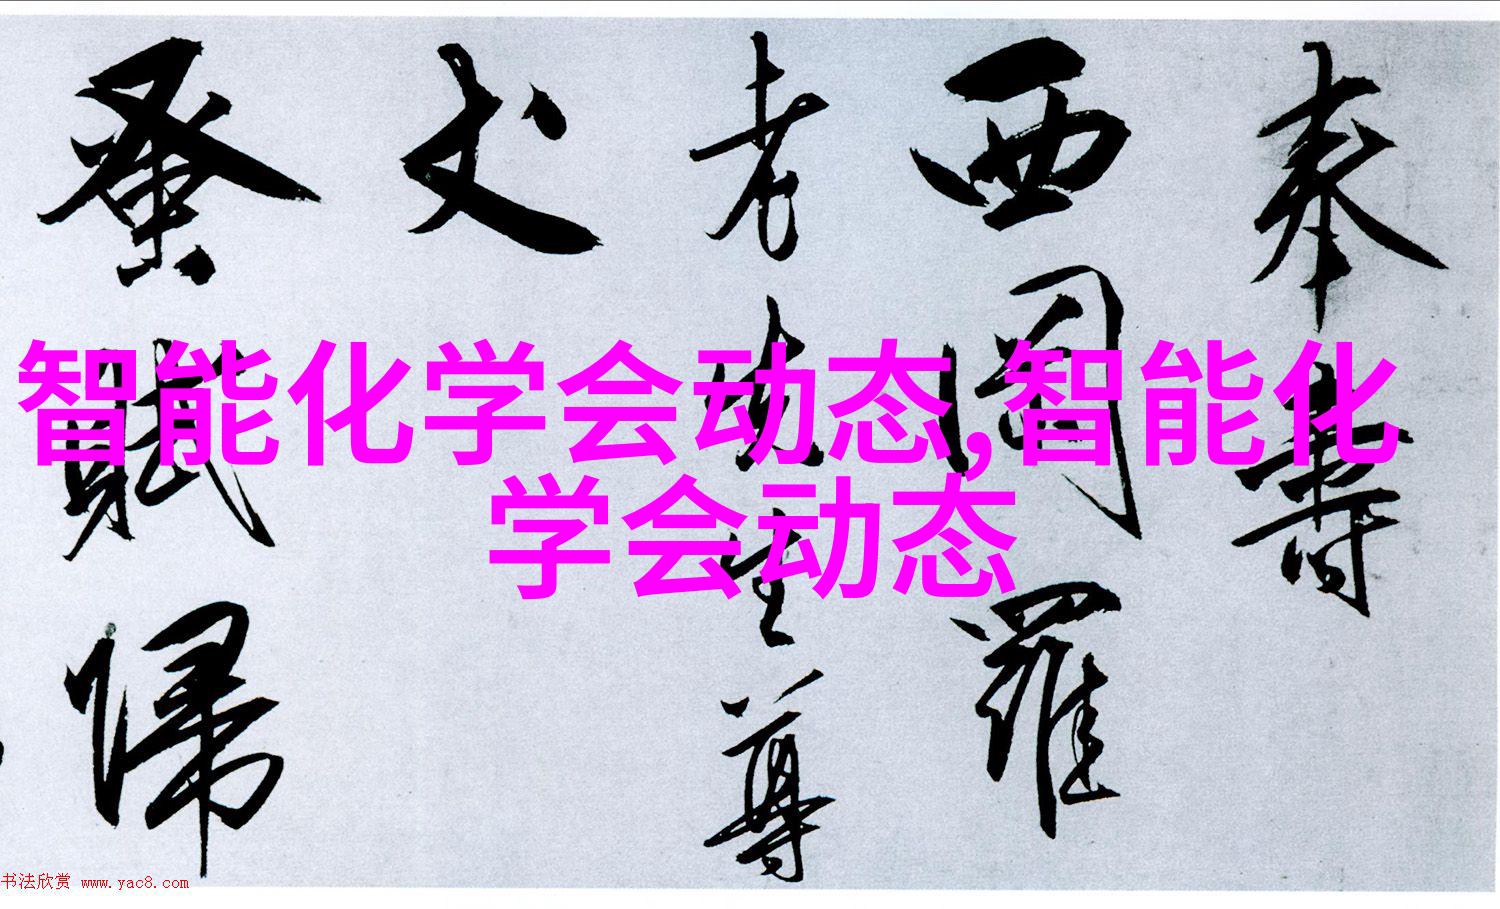 智能化学会动态,智能化
学会动态
奉壽
西岡羅
老先生尊
丈
蚤賦歸
书法欣赏 www.yac8.com